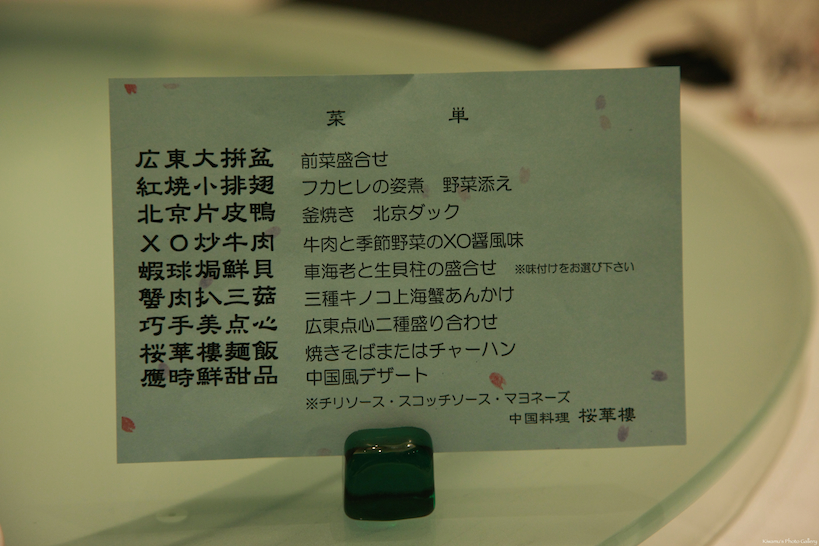 菜 単
広東大拼盆 前菜盛合せ
紅焼小排翅 フカヒレの姿煮 野菜添え
北京片皮鴨 釜焼き 北京ダック
XO炒牛肉 牛肉と季節野菜のXO醤風味
蝦球焗鮮貝 車海老と生貝柱の盛合せ ※味付けをお選び下さい
蟹肉扒三菇 三種キノコ上海蟹あんかけ
巧手美点心 広東点心二種盛り合わせ
桜華樓麺飯 焼きそばまたはチャーハン
應時鮮甜品 中国風デザート
※チリソース・スコッチソース・マヨネーズ
中国料理 桜華樓